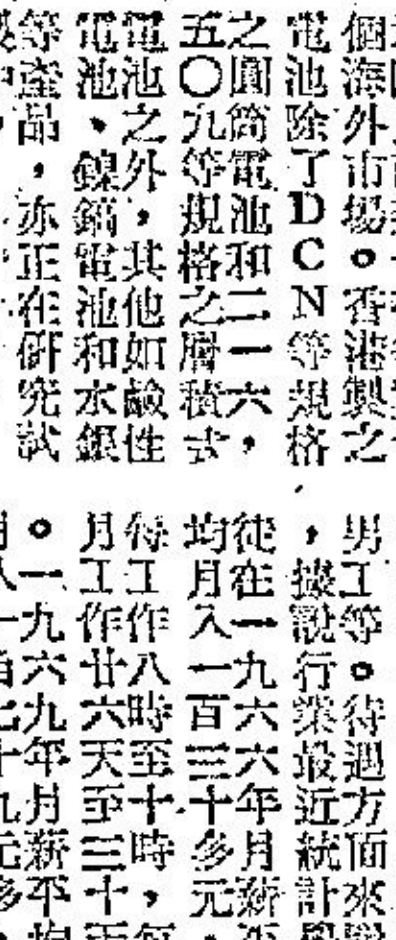 個海外市場。香港製之
電池除了DCN等規格
之圓筒電池和二一六，
五〇九等規格之層積式
電池之外，其他如鹼性
電池、鎳鎘電池和水銀
等產品，亦正在研究試
男工等。待遇方面來
，據說行業最近統計
徒在一九六六年月薪平
均月入一百三十多元，
得工作八時至十時，每
月工作廿六天至三十天
。一九六九年月薪平均